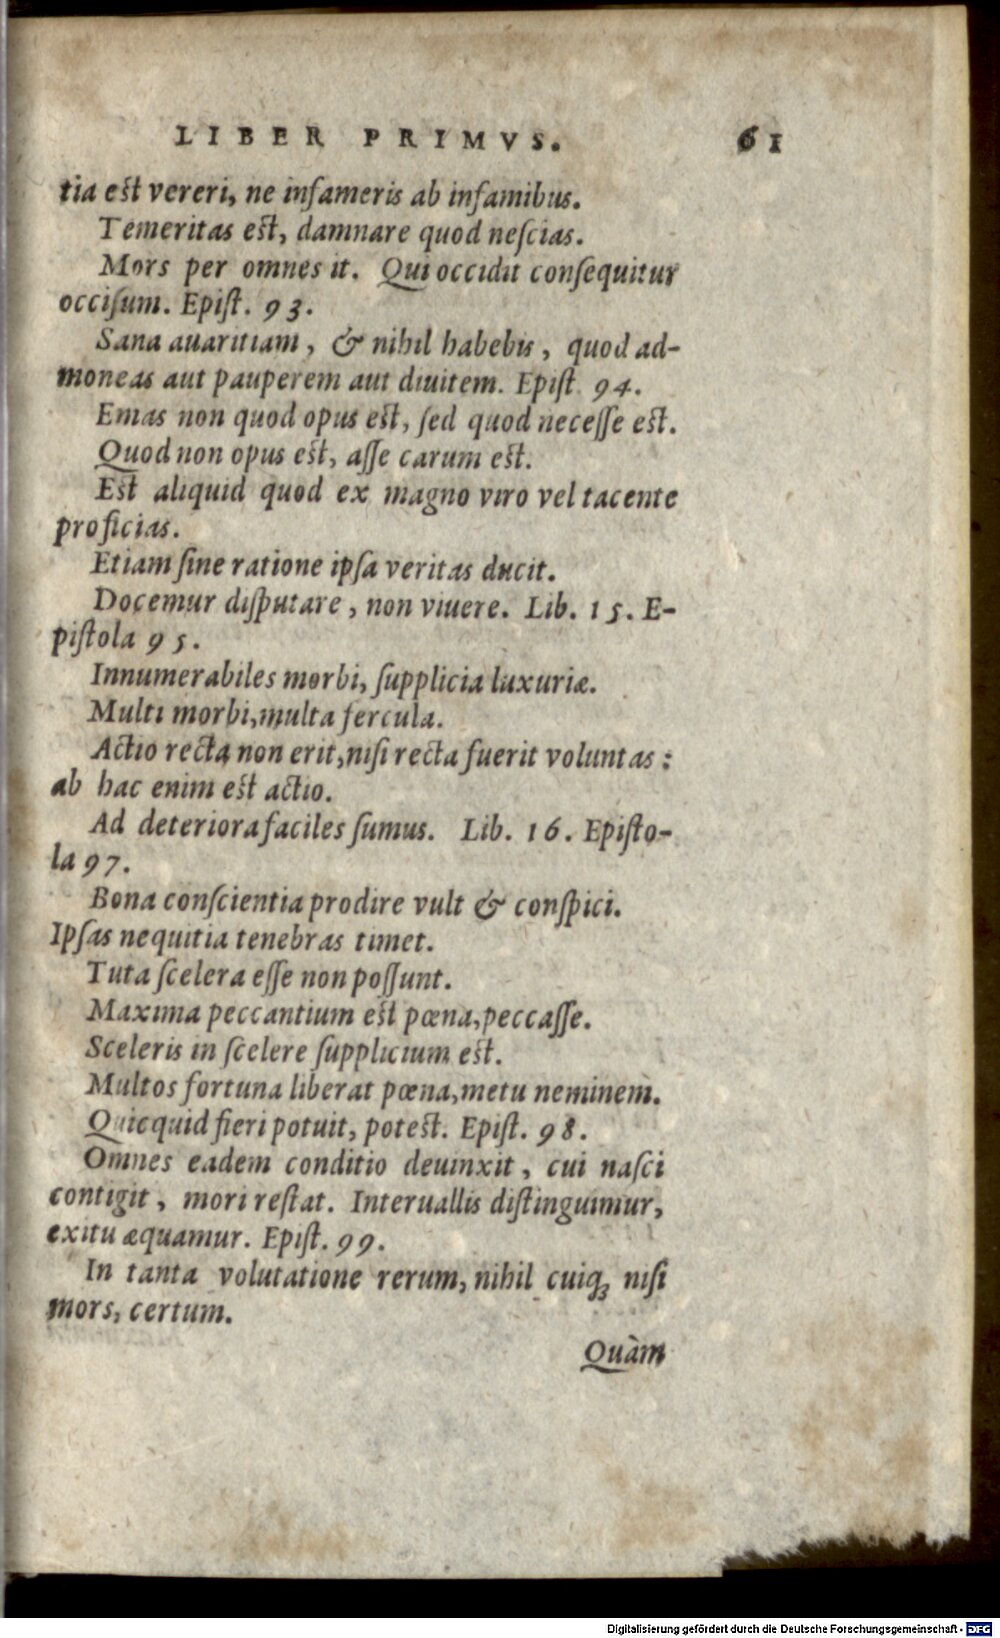 LIBER PRIMVS. 61
tia est vereri, ne infameris ab infamibus.
Temeritas est, damnare quod neſcias.
Mors per omnes it. Qui occidit conſequitur
occiſum. Epiſt. 93.
Sana auaritiam, & nihil habebis, quod ad-
moneas aut pauperem aut diuitem. Epiſt. 94.
Emas non quod opus est, ſed quod neceſſe est.
Quod non opus est, aſſe carum est.
Est aliquid quod ex magno viro vel tacente
proficias.
Etiam ſine ratione ipſa veritas ducit.
Docemur diſputare, non viuere. Lib. 15. E-
piſtola 95.
Innumerabiles morbi, ſupplicia luxuriæ.
Multi morbi, multa fercula.
Actio recta non erit, niſi recta fuerit voluntas:
ab hac enim est actio.
Ad deteriora faciles ſumus. Lib. 16. Epiſto-
la 97.
Bona conſcientia prodire vult & conſpici.
Ipſas nequitia tenebras timet.
Tuta ſcelera eſſe non poſſunt.
Maxima peccantium est pœna, peccaſſe.
Sceleris in ſcelere ſupplicium est.
Multos fortuna liberat pœna, metu neminem.
Quicquid fieri potuit, potest. Epiſt. 98.
Omnes eadem conditio deuinxit, cui naſci
contigit, mori reſtat. Interuallis diſtinguimur,
exitu æquamur. Epiſt. 99.
In tanta volutatione rerum, nihil cuiq; niſi
mors, certum.
Quàm
Digitalisierung gefördert durch die Deutsche Forschungsgemeinschaft - DFG